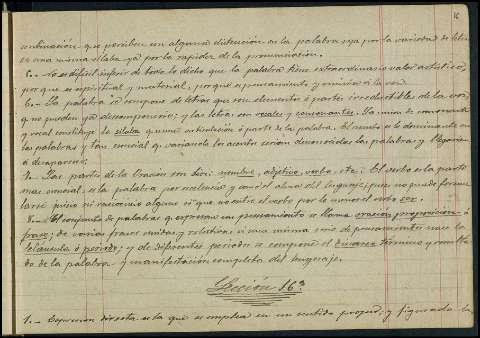 combinación que perciben en alguna distinción en la palabra ya por la variedad de letras
en una misma sílaba ya por la rapidez de la pronunciación.
5. - No es difícil inferir de todo lo dicho que la palabra tiene extraordinario valor artístico,
por que es espiritual y material, porque es pensamiento y emisión de la voz.
6. - La palabra se compone de letras que son elementos ó partes irreductibles de la voz,
que no pueden ya descomponerse; y las letras son vocales y consonantes. La unión de consonante
y vocal constituye la sílaba que una articulación ó parte de la palabra. El acento es lo dominante en
las palabras y tan esencial que variando los acentos serían desconocidas las palabras y llegarían
á desaparecer.
7. - Las partes de la Oración son diez: nombre, adjetivo, verbo, etc. El verbo es la parte
mas esencial, es la palabra por excelencia y como el alma del lenguaje, pues no puede formu
larse juicio ni raciocinio alguno sin que no entre el verbo por lo menos el verbo ser.
8. - El conjunto de palabras q. expresan un pensamiento se llama oración, proposición ó
frase; de varias frases unidas y relativas á una misma serie de pensamientos nace la
cláusula ó período; y de diferentes períodos se compone el discurso término y resulta
do de la palabra y manifestación completa del lenguaje.
Lección 16ª
1. - Expresion directa es la que se emplea en un sentido propio; y figurada la